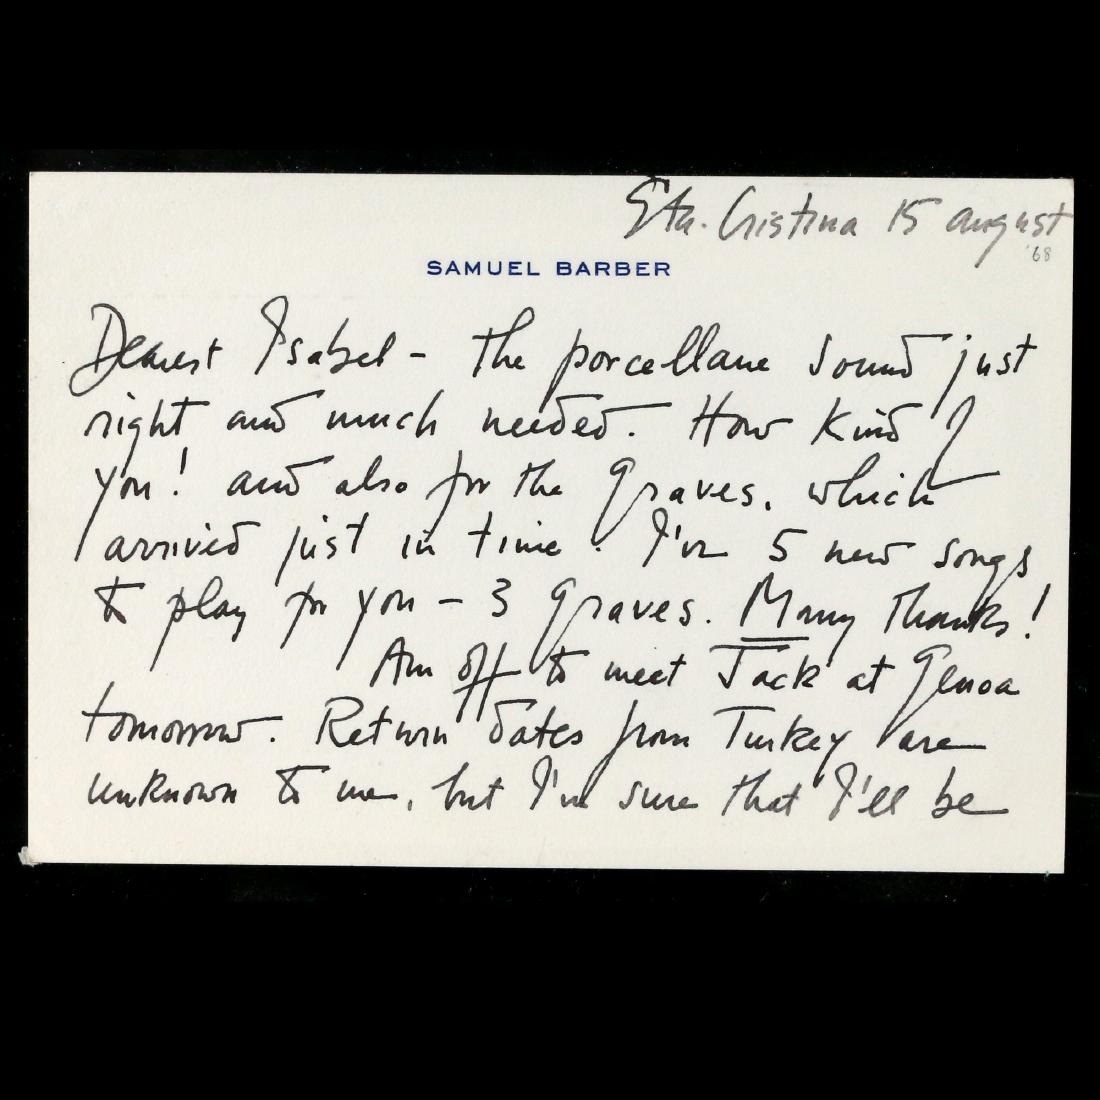 Sta. Cristina 15 august
'68
SAMUEL BARBER
Dearest Isabel - the porcellane sound just
right and much needed. How kind of
you! and also for the Graves, which
arrived just in time. I've 5 new songs
to play for you - 3 Graves. Many thanks!
Am off to meet Jack at Genoa
tomorrow. Return dates from Turkey are
unknown to me, but I'm sure that I'll be